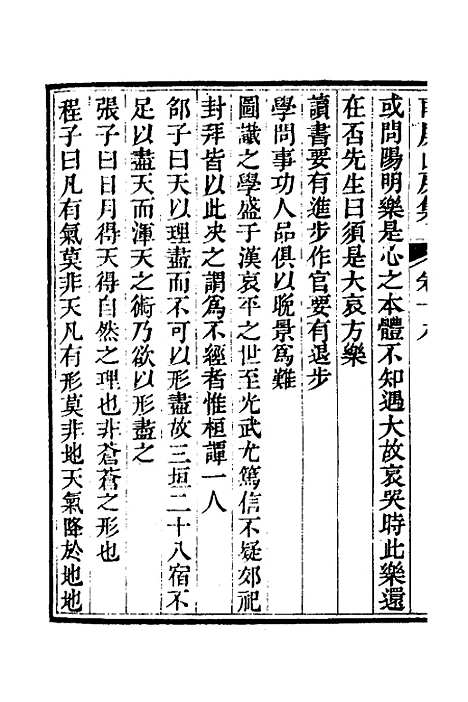 山房集 卷十八
或問陽明樂是心之本體不知遇大故哀哭時此樂還
在否先生曰須是大哀方樂
讀書要有進步作官要有退步
學問事功人品俱以晚景爲難
圖讖之學盛于漢哀平之世至光武尤篤信不疑郊祀
封拜皆以此决之謂爲不經者惟桓譚一人
邵子曰天以理盡而不可以形盡故三垣二十八宿不
足以盡天而渾天之術乃欲以形盡之
張子曰日月得天得自然之理也非蒼蒼之形也
程子曰凡有氣莫非天凡有形莫非地天氣降於地地